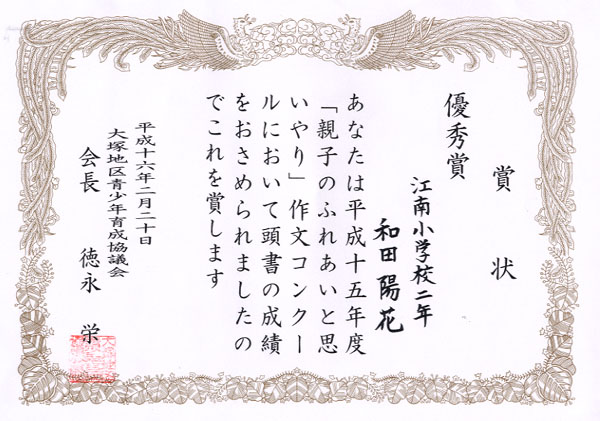 賞状
優秀賞
江南小学校二年
和田陽花
あなたは平成十五年度
「親子のふれあいと思
いやり」作文コンクー
ルにおいて頭書の成績
をおさめられましたの
でこれを賞します
平成十六年二月二十日
大塚地区青少年育成協議会
会長 徳永 栄